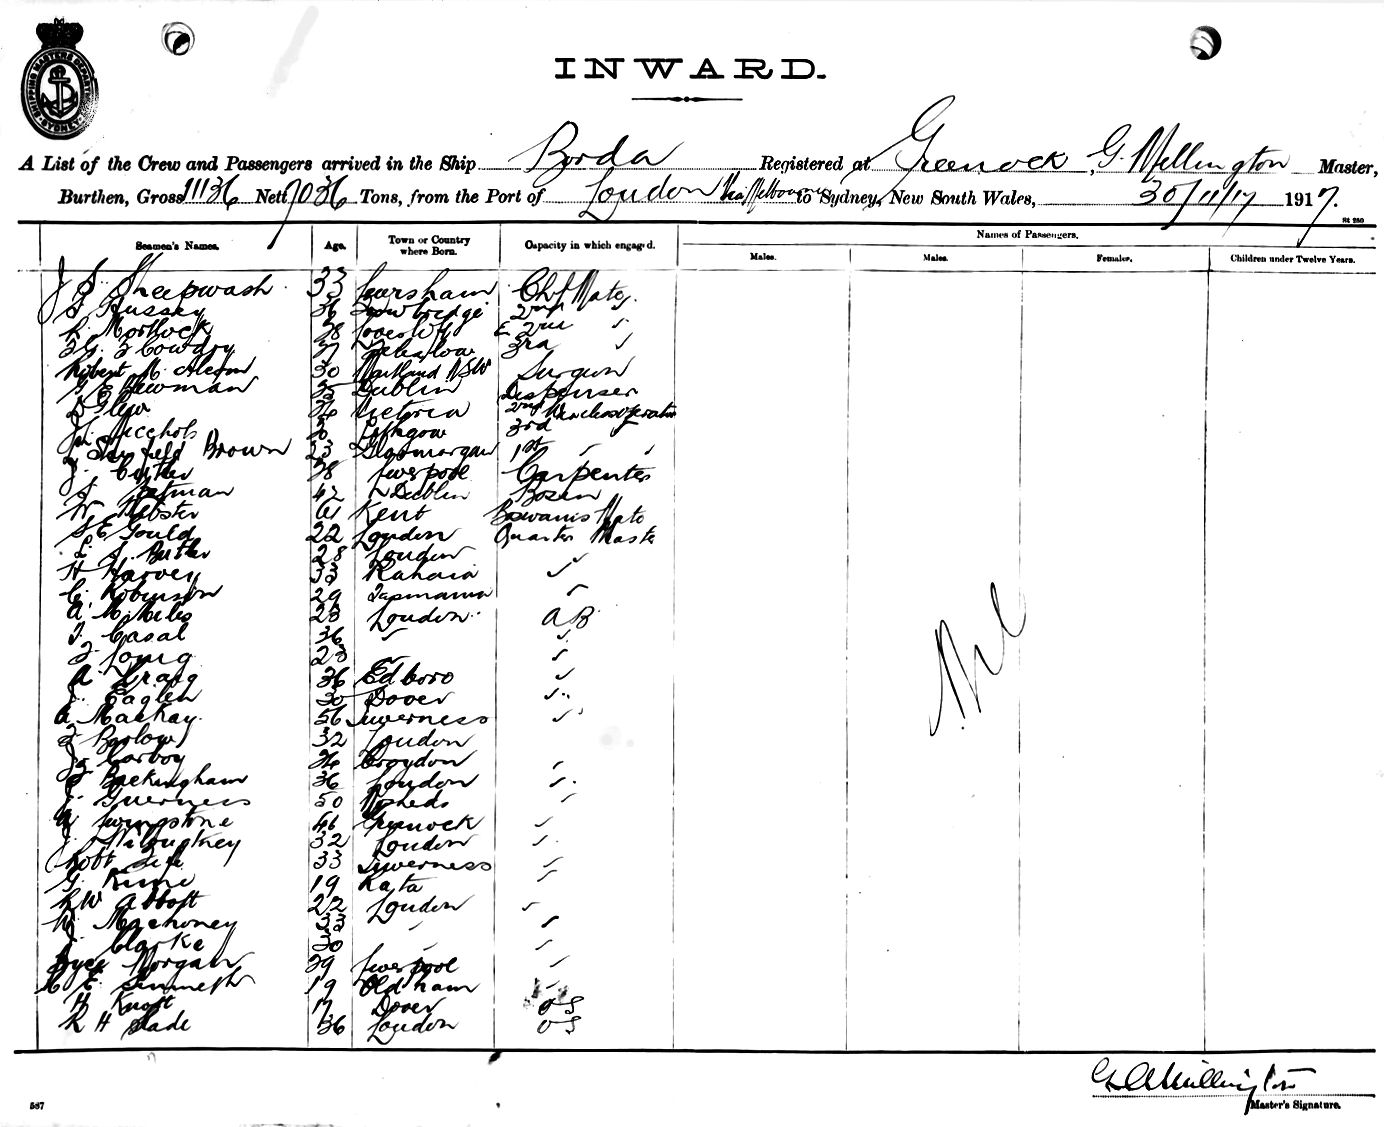 SHIPPING MASTERS DEPARTMENT SYDNEY
INWARD.
A List of the Crew and Passengers arrived in the Ship Borda Registered at Greenock, G. Wellington Master,
Burthen, Gross 11136 Nett 7036 Tons, from the Port of London Via Melbourne to Sydney, New South Wales, 30/11/17 1917.
St 250
Seamen's Names. Age. Town or Country where Born. Capacity in which engaged. Names of Passengers.
Males. Males. Females. Children under Twelve Years.
J S Sheepwash 33 Chf Mate
F Hussey 36 2nd
R. Mortlock 28 2nd ✓
Cowdry 37 3rd ✓
Robert M. 30 Maitland NSW Surgeon
Newman 25 Dublin Dispenser
D Glew 26 Victoria 2nd Wireless Operator
Nicchols Lithgow 3rd
Brown 23 Glasmorgan 1st ✓ ✓
J. 38 Liverpool Carpenter
42 Dublin Bosen
W Webster Kent Boswains Mate
S E Gould 22 London Quarter Master
L. J. Butler 28 London ✓
H Harvey 33 ✓
C. Robinson 29 Tasmania ✓
A. Miles 23 London AB
J. Casal 36 ✓ ✓
F Long 23 ✓
A. Craig 36 Edboro ✓
J. Eaglen 30 Dover ✓
A Mackay 56 Inverness ✓
F Barlow 32 London
J. Corboy 26 Croydon ✓
F Buckingham 36 London ✓
J. Guerness 50 ✓
Livingstone 46 Greenock ✓
J. 32 London ✓
Robt 33 Inverness ✓
G. Kime 19 ✓
R W Abbott 22 London ✓
W. Machoney 33 ✓ ✓
J. Clarke 30 ✓ ✓
Morgan 29 Liverpool ✓
C E. Sinmeth 19 Oldham ✓
H Knott 17 Dover OS
R H Slade 36 London OS
Nil
Master's Signature.
587